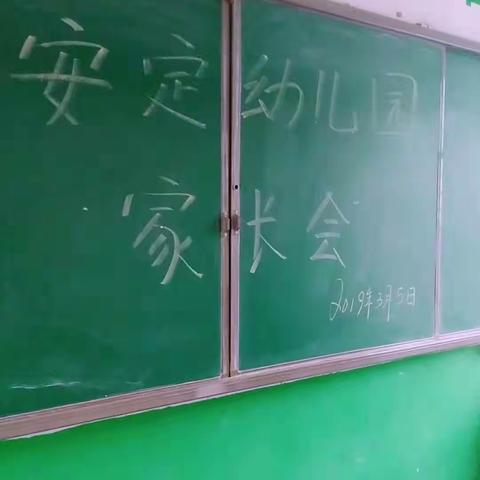 安定幼儿园
家长会
2019年3月5日